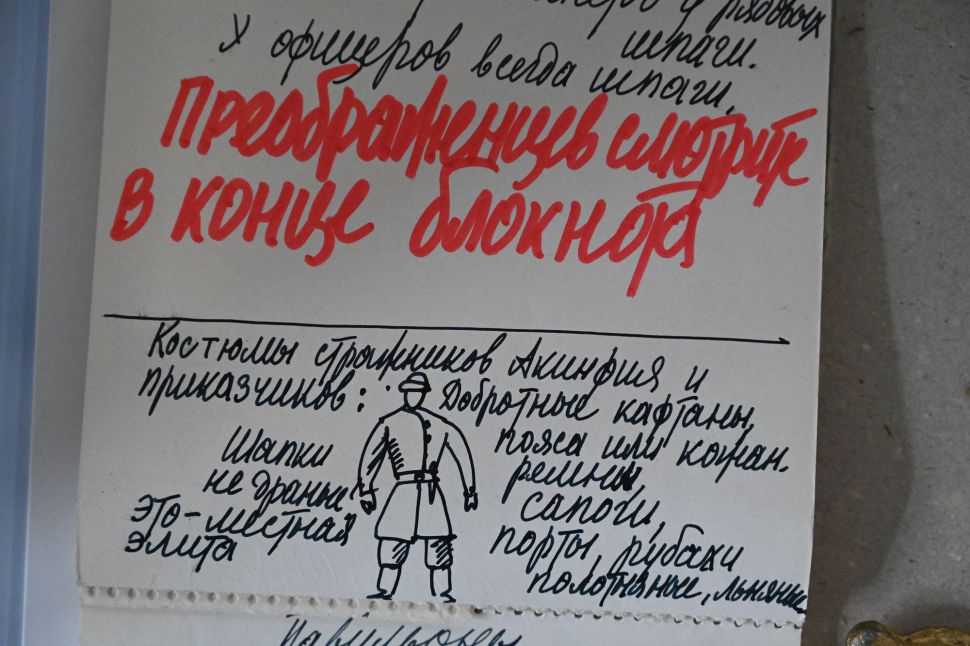 у рядовых
шпаги.
У офицеров всегда шпаги.
Преображенцев смотрите
в конце блокнота
Костюмы стражников Акинфия и
приказчиков: Добротные кафтаны,
пояса или кожан.
ремни,
сапоги,
порты, рубахи
полотняные, льняные
Шапки
не драные
это-местная
элита
Павильоны